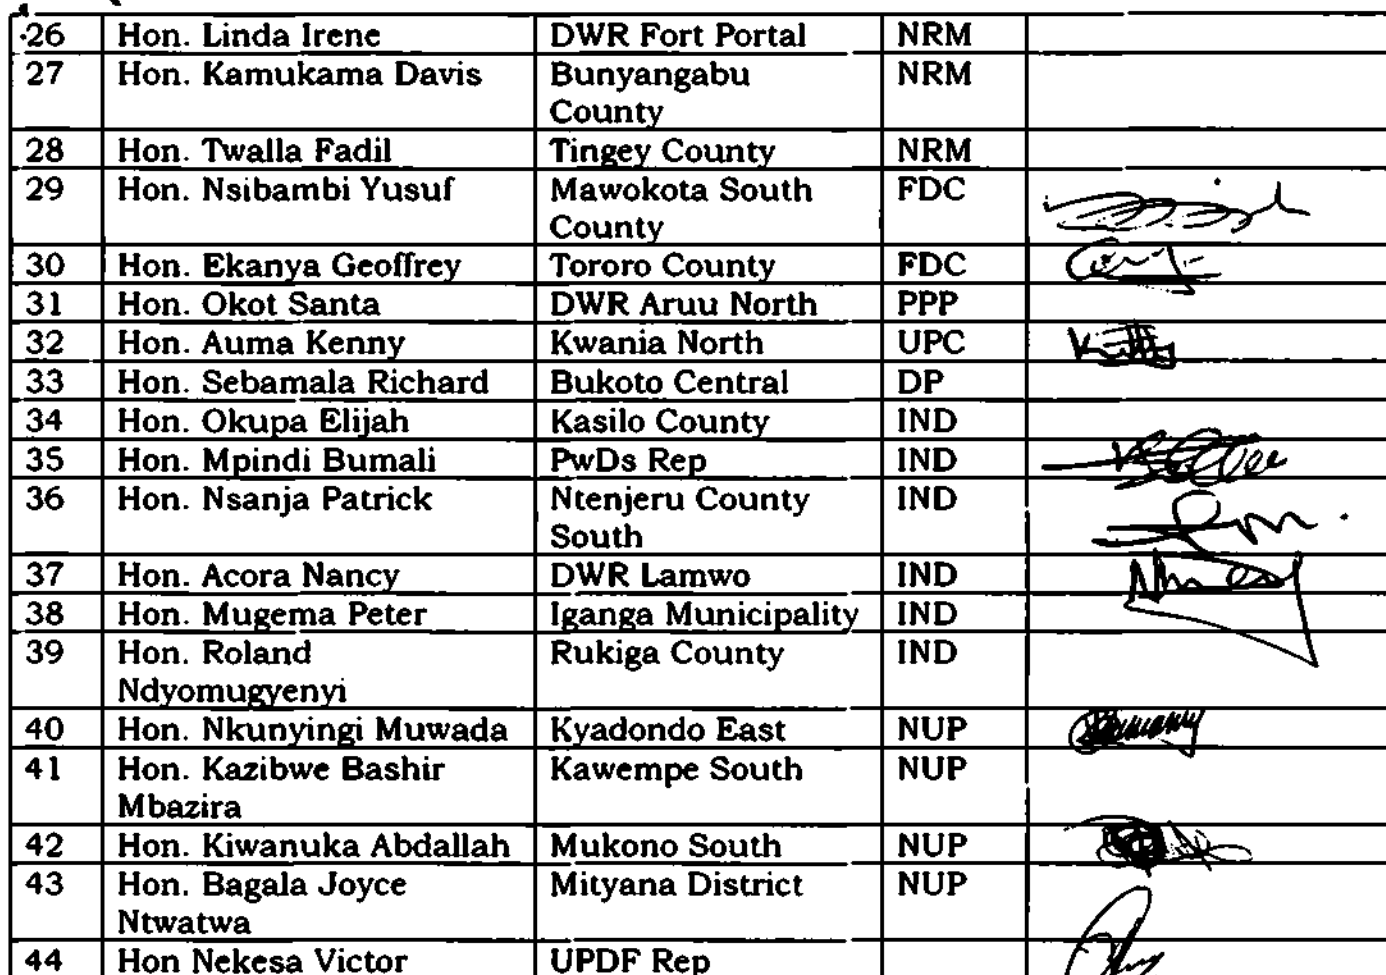 26 Hon. Linda Irene DWR Fort Portal NRM
27 Hon. Kamukama Davis Bunyangabu NRM
County
28 Hon. Twalla Fadil Tingey County NRM
29 Hon. Nsibambi Yusuf Mawokota South FDC
County
30 Hon. Ekanya Geoffrey Tororo County FDC
31 Hon. Okot Santa DWR Aruu North PPP
32 Hon. Auma Kenny Kwania North UPC
33 Hon. Sebamala Richard Bukoto Central DP
34 Hon. Okupa Elijah Kasilo County IND
35 Hon. Mpindi Bumali PwDs Rep IND
36 Hon. Nsanja Patrick Ntenjeru County IND
South
37 Hon. Acora Nancy DWR Lamwo IND
38 Hon. Mugema Peter Iganga Municipality IND
39 Hon. Roland Rukiga County IND
Ndyomugyenyi
40 Hon. Nkunyingi Muwada Kyadondo East NUP
41 Hon. Kazibwe Bashir Kawempe South NUP
Mbazira
42 Hon. Kiwanuka Abdallah Mukono South NUP
43 Hon. Bagala Joyce Mityana District NUP
Ntwatwa
44 Hon Nekesa Victor UPDF Rep